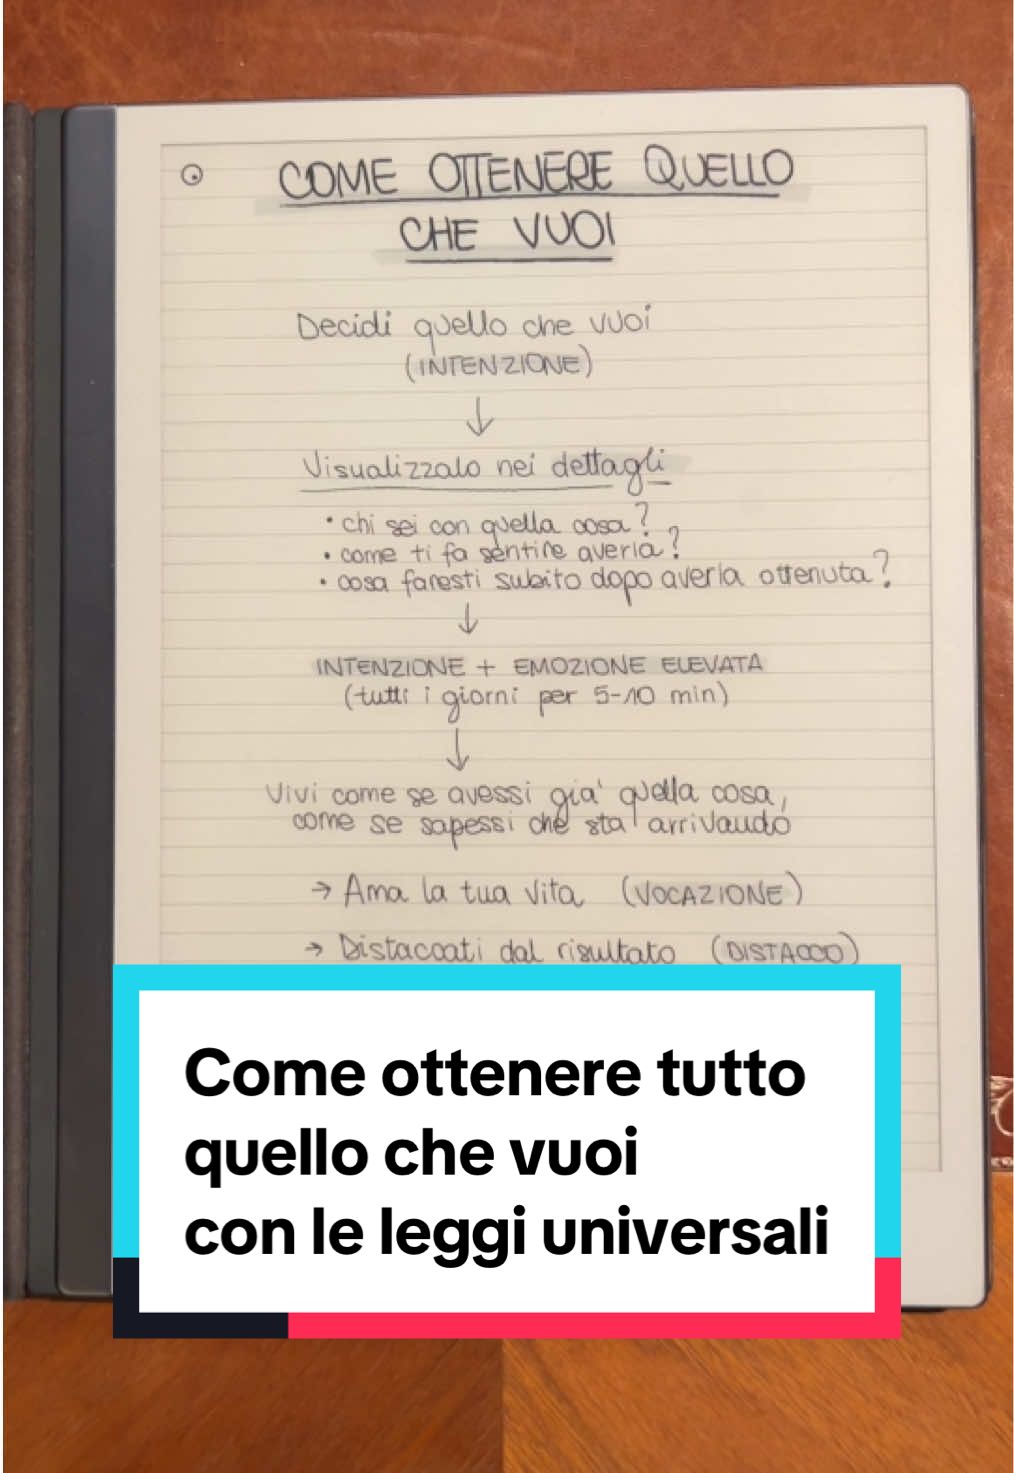 COME OTTENERE QUELLO
CHE VUOI
Decidi quello che vuoi
(INTENZIONE)
↓
Visualizzalo nei dettagli
• chi sei con quella cosa?
• come ti fa sentire averla?
• cosa faresti subito dopo averla ottenuta?
↓
INTENZIONE + EMOZIONE ELEVATA
(tutti i giorni per 5-10 min)
↓
Vivi come se avessi già quella cosa,
come se sapessi che sta arrivando
→ Ama la tua vita (VOCAZIONE)
→ Distaccati dal risultato (DISTACCO)
Come ottenere tutto
quello che vuoi
con le leggi universali